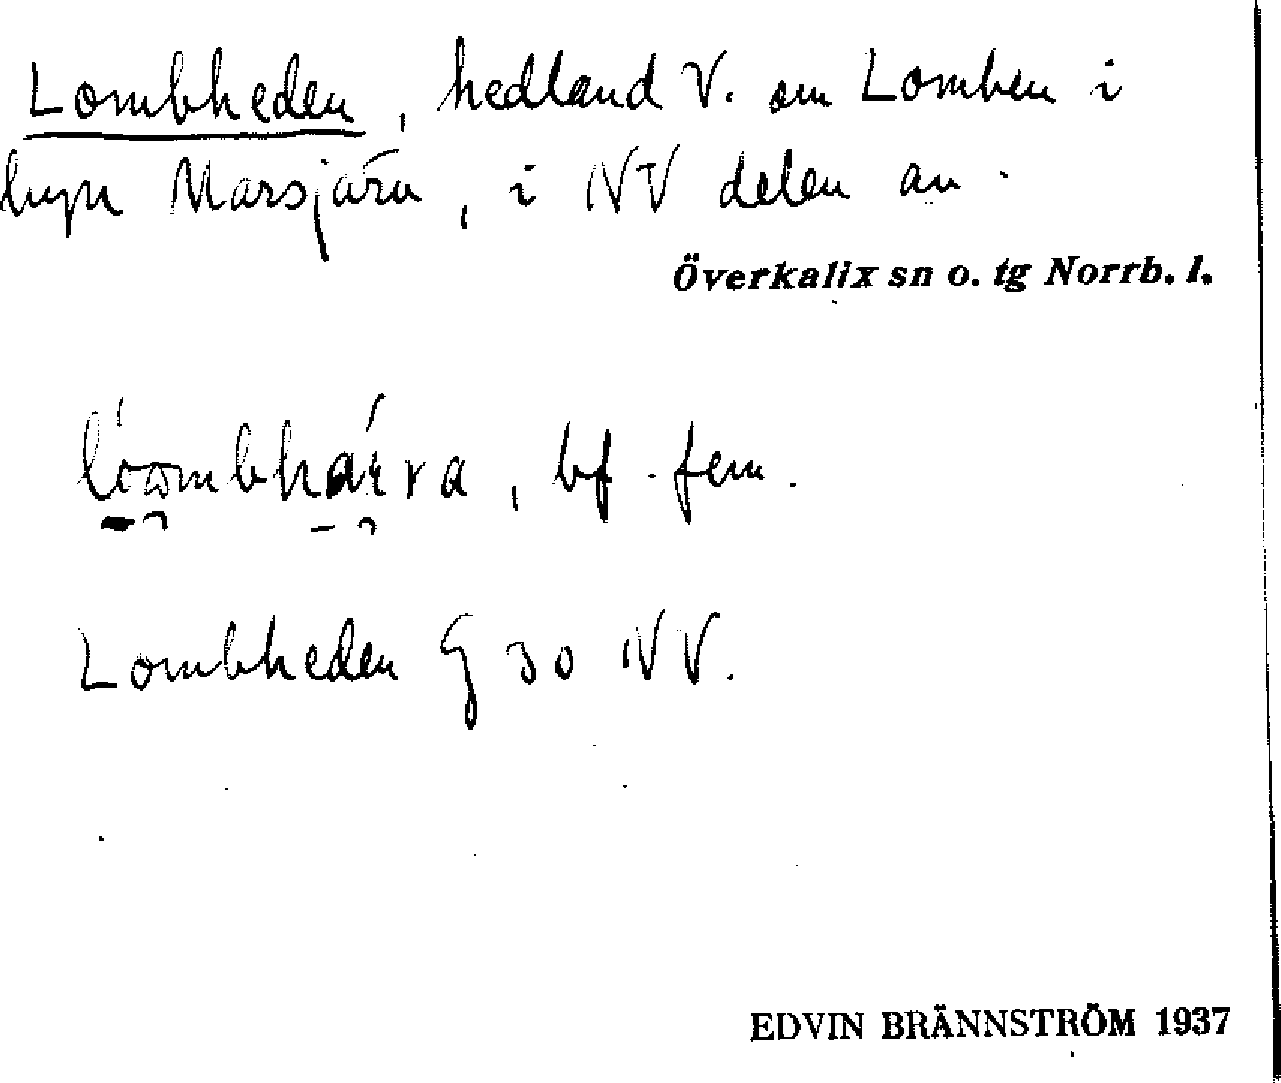 Lombheden, hedland V. om Lomben i
byn Marsjärv, i NV delen av
Överkalix sn o. tg Norrb. l.
bf. fem.
Lombheden G 30 NV.
EDVIN BRÄNNSTRÖM 1937